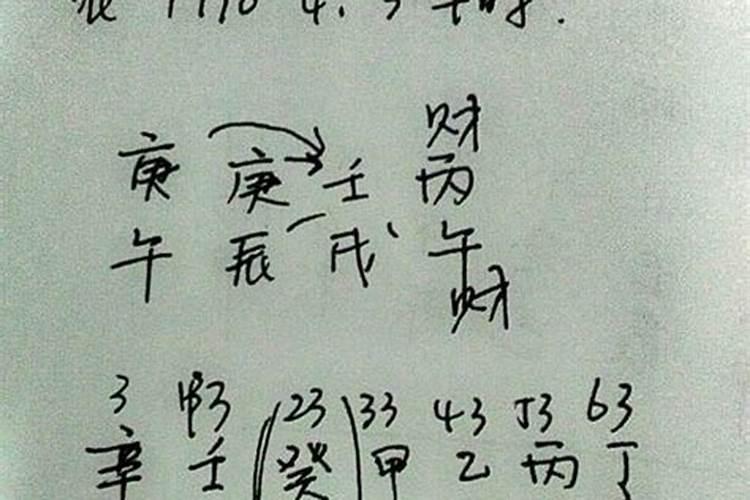 农 1990 4. 5 午时.
财
庚 庚 壬 丙
午 辰 戌 午
财
3 13 (23) 33 43 53 63
辛 壬 癸 甲 乙 丙 丁